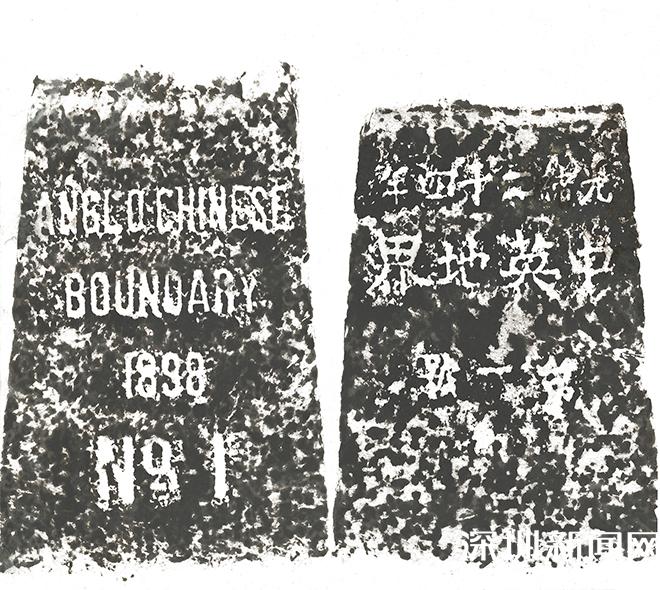 ANGLO-CHINESE
BOUNDARY
1898
No 1
光緒二十四年
中英地界
第一號
深圳新闻网